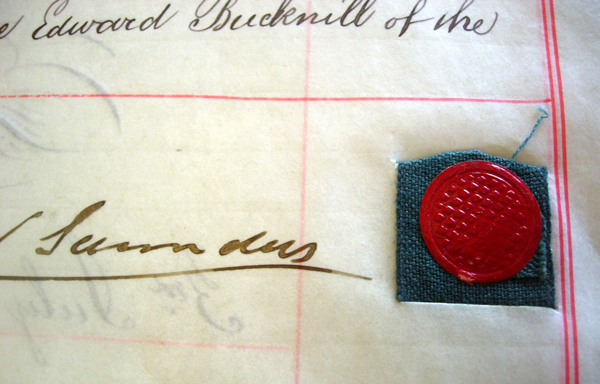 Edward Bucknill of the
Saunders